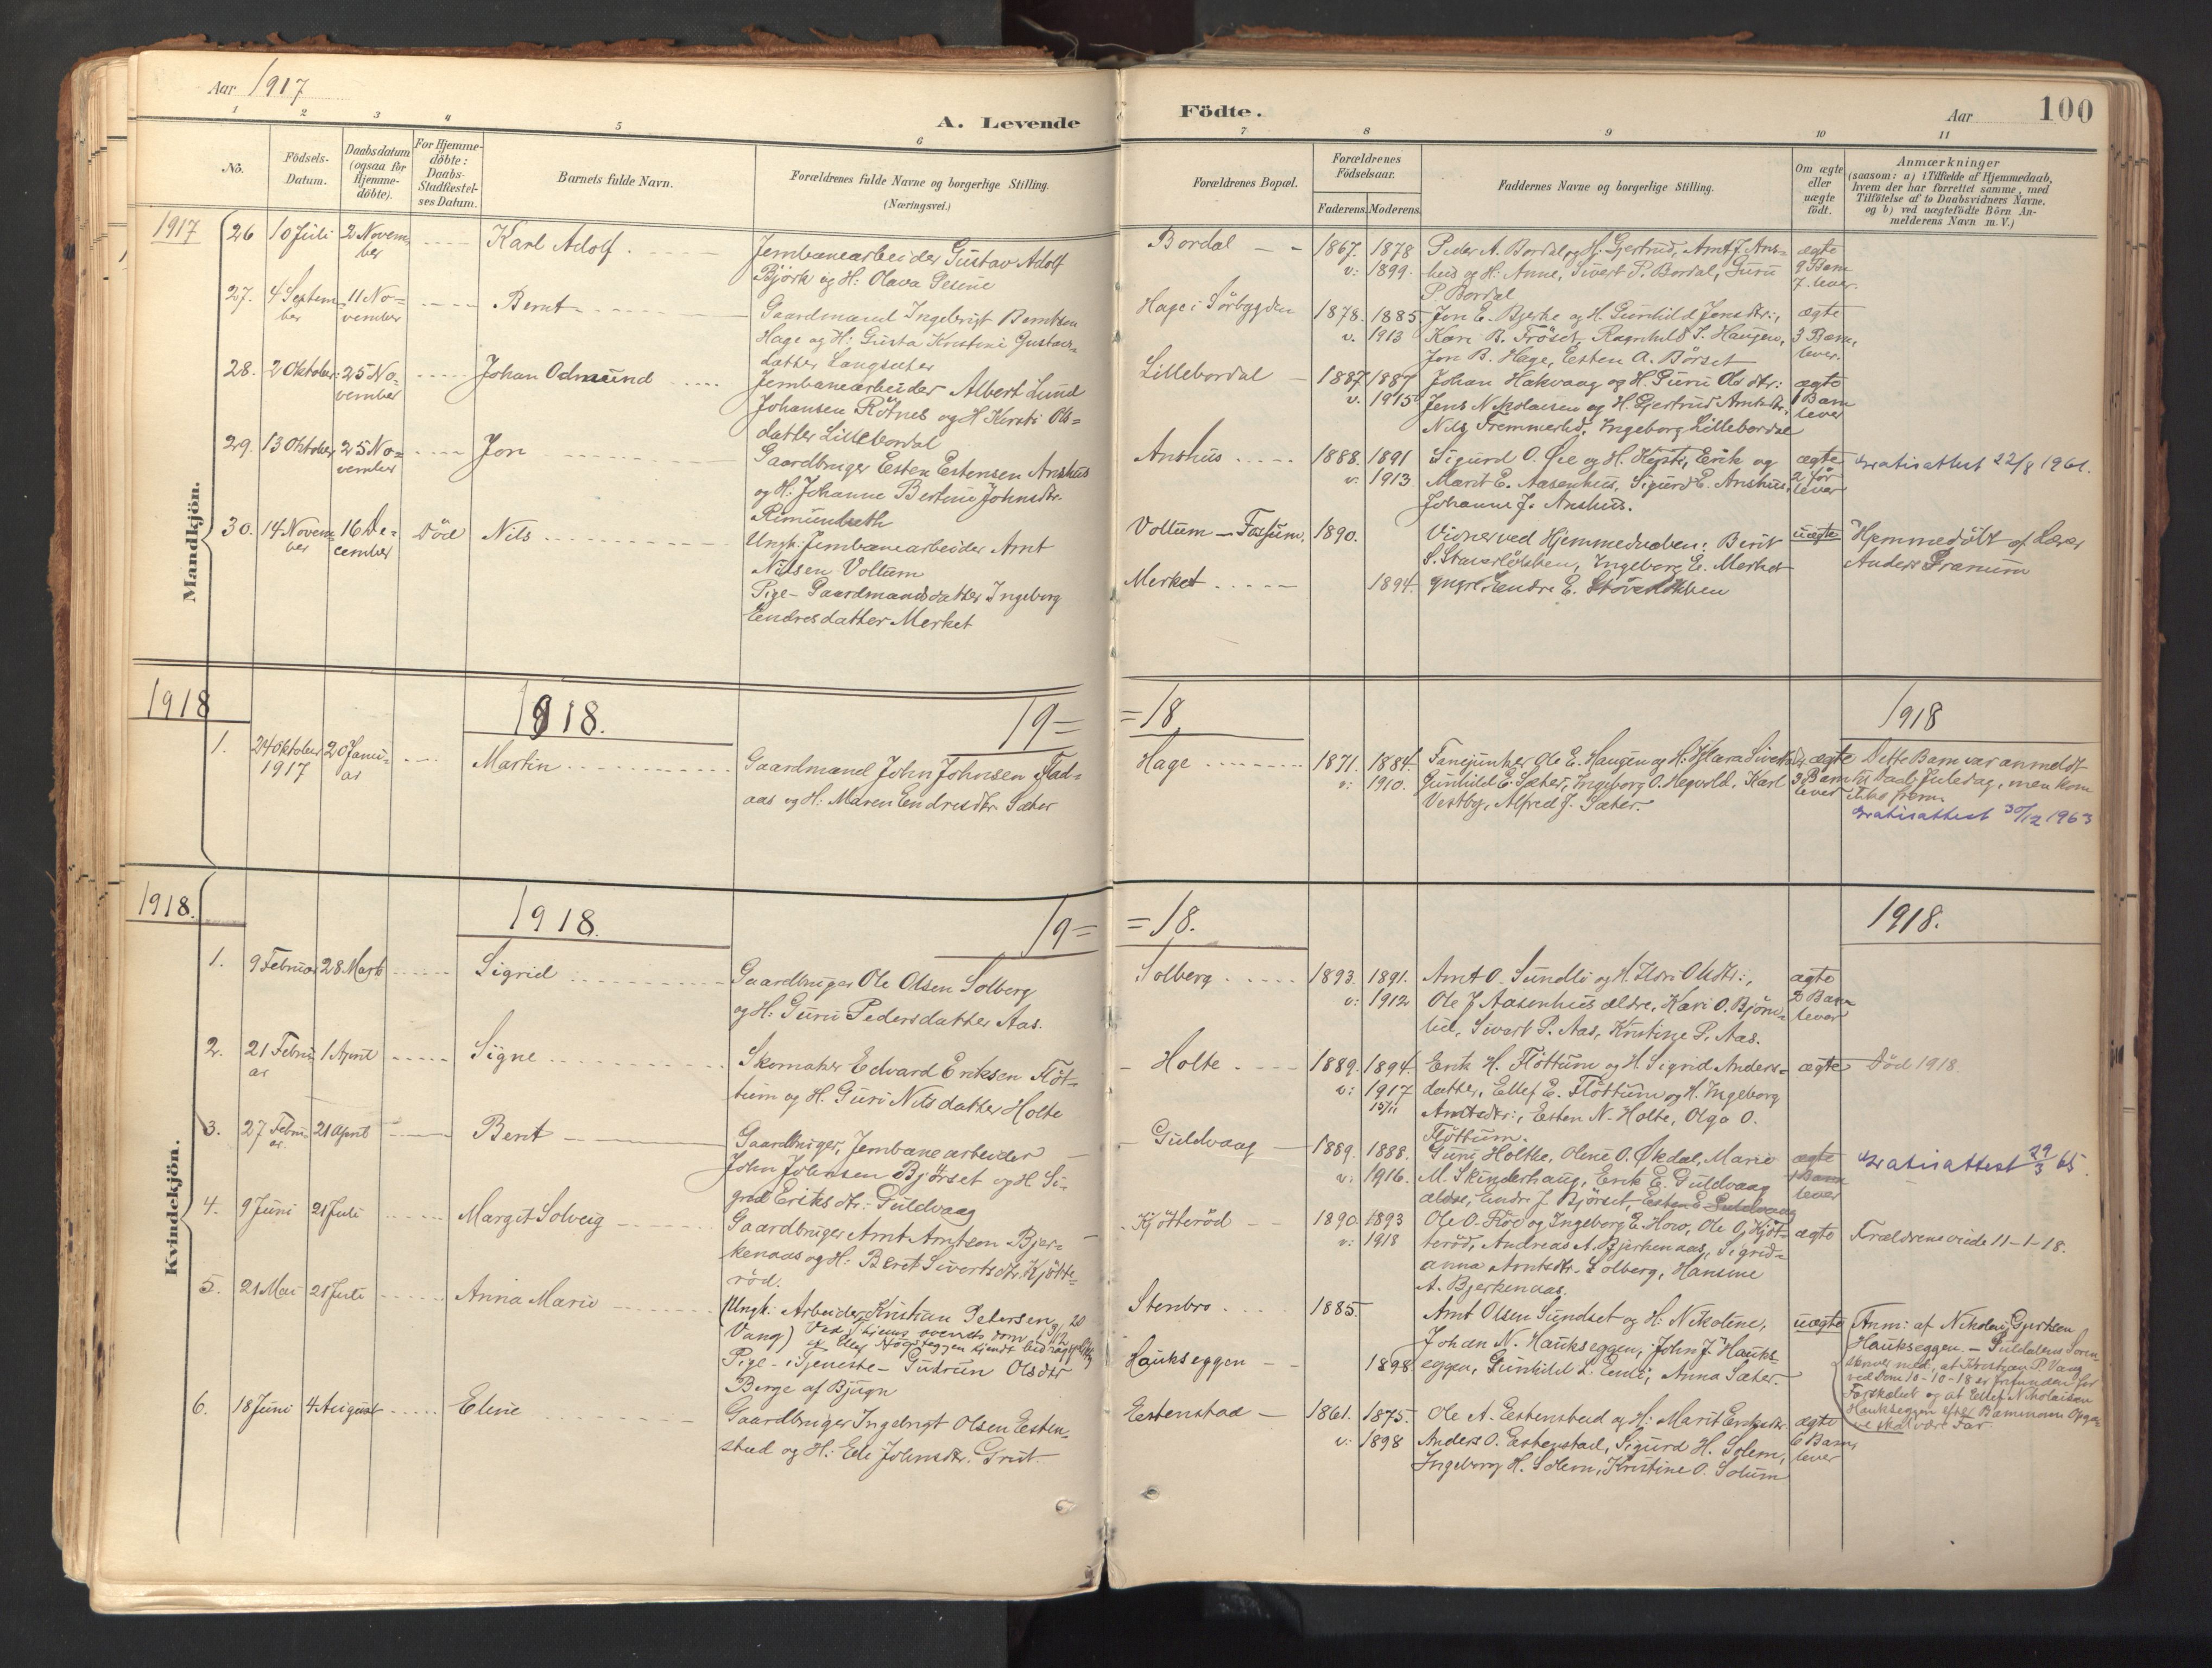 Aar 1917
A. Levende
Födte.
Aar
100
1 2 3 4 5 6 7 8 9 10 11
No.
Födsels-
Datum.
Daabsdatum
(ogsaa for
Hjemme-
döbte).
For Hjemme-
döbte:
Daabs-
Stadfæstel-
ses Datum.
Barnets fulde Navn.
Forældrenes fulde Navne og borgerlige Stilling.
(Næringsvei.)
Forældrenes Bopæl.
Forældrenes
Födselsaar.
Faderens. Moderens.
Faddernes Navne og borgerlige Stilling.
Om ægte
eller
uægte
födt.
Anmærkninger
(saasom: a) i Tilfælde af Hjemmedaab,
hvem der har forrettet samme, med
Tilföielse af to Daabsvidners Navne.
og b) ved uægtefödte Börn An-
melderens Navn m. V.)
Mandkjön.
1917
26 10 Juli 2 Novem-
ber
Karl Adolf.
Jernbanearbeider Gustav Adolf
Björk og H: Olava
Bordal
1867. 1878
v: 1899.
Peder A. Bordal og H. Gjertrud, Arnt J. Ans-
hus og H: Anne, Sivert P. Bordal, Guru
P. Bordal
ægte
9 Barn
7 lever.
27. 4 Septem-
ber
11 No-
vember
Bernt
Gaardmand Ingebrigt Berntsen
Hage og H: Gusta Kristine Gustavs-
datter Langsæter
Hage i Sörbygden
1878. 1885
v. 1913
Jon E. Bjerke og H. Gunhild Jonsdtr:,
Kari B. Fröset, Ragnhild I. Haugen,
Jon B. Hage, Esten A. Börset
ægte
3 Barn,
lever.
28. 2 Oktober 25 No-
vember
Johan Odmund
Jernbanearbeider Albert Lund
Johansen Rötnes og H Kirsti Ols-
datter Lillebordal
Lillebordal
1887 1887
v. 1915
Johan Hakvaag og H. Guru Olsdtr:
Jens Nikolaisen og H. Gjertrud Arntsdtr.
Nils Fremmerlid, Ingeborg Lillebordal
ægte
1 Barn
lever
29. 13 Oktober 25 No-
vember
Jon
Gaardbruger Esten Estensen Anshus
og H: Johanne Bertine Johnsdtr.
Anshus
1888. 1891
v. 1913
Sigurd O. Öie og H. Kjersti, Erik og
Marit E. Aasenhus, Sigurd E. Anshus,
Johanne J. Anshus.
ægte
2 för
lever
Gratisattest 22/8 1961.
30. 14 Novem-
ber
16 De-
cember
Död
Nils
Ungk: Jernbanearbeider Arnt
Nilsen Voltum
Pige - Gaardmandsdatter Ingeborg
Endresdatter Merket
Voltum - Fossum.
Merket
1890.
1894.
Vidner ved Hjemmedaaben: Berit
Ingeborg E. Merket
yngre, Endre E. Störenløkken
uægte
Hjemmedöbt af Lærer
Anders Granum
1918
1918.
19=
=18
1918
1. 24 Oktober
1917
20 Janu-
ar
Martin
Gaardmand John Johnsen Flad-
aas og H: Maren Endresdtr. Sæter
Hage
1871. 1884.
v: 1910.
Fanejunker Ole E. Haugen og H: Klara Sivertsdtr
Gunhild E. Sæter, Ingeborg O. Hegvold, Karl
Vestby, Alfred J. Sæter.
ægte
3 Barn
lever
Dette Barn var anmeldt
til Daab Juledag, men kom
ikke frem.
Gratisattest 30/12 1963
Kvindekjön.
1918.
1918.
19=
=18.
1918.
1. 9 Februar 28 Marts
Sigrid
Gaardbruger Ole Olsen Solberg
og H: Guru Pedersdatter Aas.
Solberg
1893. 1891.
v: 1912
Arnt O. Sundli og H. Ildri Olsdtr:,
Ole J Aasenhus ældre, Kari O. Björn-
lid, Sivert P. Aas, Kristine P. Aas.
ægte
2 Barn
lever
2. 21 Febru-
ar
1 April
Signe
Skomaker Edvard Eriksen Flöt-
tum og H. Guri Nilsdatter Holte
Holte
1889. 1894.
v: 1917
15/11
Erik H. Flöttum og H. Sigrid Anders-
datter, Ellef E. Flöttum og H. Ingeborg
Arntsdtr:, Esten N. Holte, Olga O.
Flöttum.
ægte
Död 1918.
3. 27 Febru-
ar.
21 April
Berit
Gaardbruger, Jernbanearbeider
John Johnsen Bjørset og H. Si-
grid Eriksdtr: Guldvaag
Guldvaag
1889. 1888.
v: 1916.
Guri Holtke, Oline O. Økdal, Marie
M. Skinderhaug, Erik E. Guldvaag
ældre, Endre J Bjørset, Esten E Guldvaag
ægte
1 Barn
lever
Gratisattest 29/3 65.
4. 9 Juni 21 Juli
Margit Solveig
Gaardbruger Arnt Arntsen Bjer-
kenaas og H: Beret Sivertsdtr. Kjötte-
röd.
Kjötteröd
1890. 1893
v: 1918
Ole O. Floe og Ingeborg E. Hov, Ole O. Kjöt-
teröd, Andreas A. Bjerkenaas, Sigrid-
anna Arntsdtr. Solberg, Hansine
A. Bjerkenaas.
ægte
Forældrene viede 11-1-18.
5. 21 Mai 21 Juli
Anna Marie
(Ungk: Arbeider Kristian Petersen
Vang)
Pige - i Tjeneste - Gudrun Olsdtr
Berge af Bjugn
Stenbro
Haukseggen
1885
1898
Arnt Olsen Sundset og H: Nikoline,
Johan N. Haukseggen, John J. Hauks-
eggen, Gunhild L. Enli, Anna Sæter.
uægte
Anm: af Nikolai Gjertsen
Haukseggen. - Guldalens Soren-
skriver med., at Kristian P. Vang
ved Dom 10-10-18 er frifunden for
Farskabet og at Ellef Nikolaisen
Haukseggen efter Barnemors Opga-
ve skal være Far.
6. 18 Juni 4 August
Eline
Gaardbruger Ingebrigt Olsen Esten-
stad og H: Eli Johnsdtr. Grut.
Estenstad
1861. 1875.
v: 1898
Ole A. Estenstad og H: Marit Eriksdtr
Anders O. Estenstad, Sigurd H. Solem,
Ingeborg H. Solem, Kristine O. Solum
ægte
6 Barn,
lever